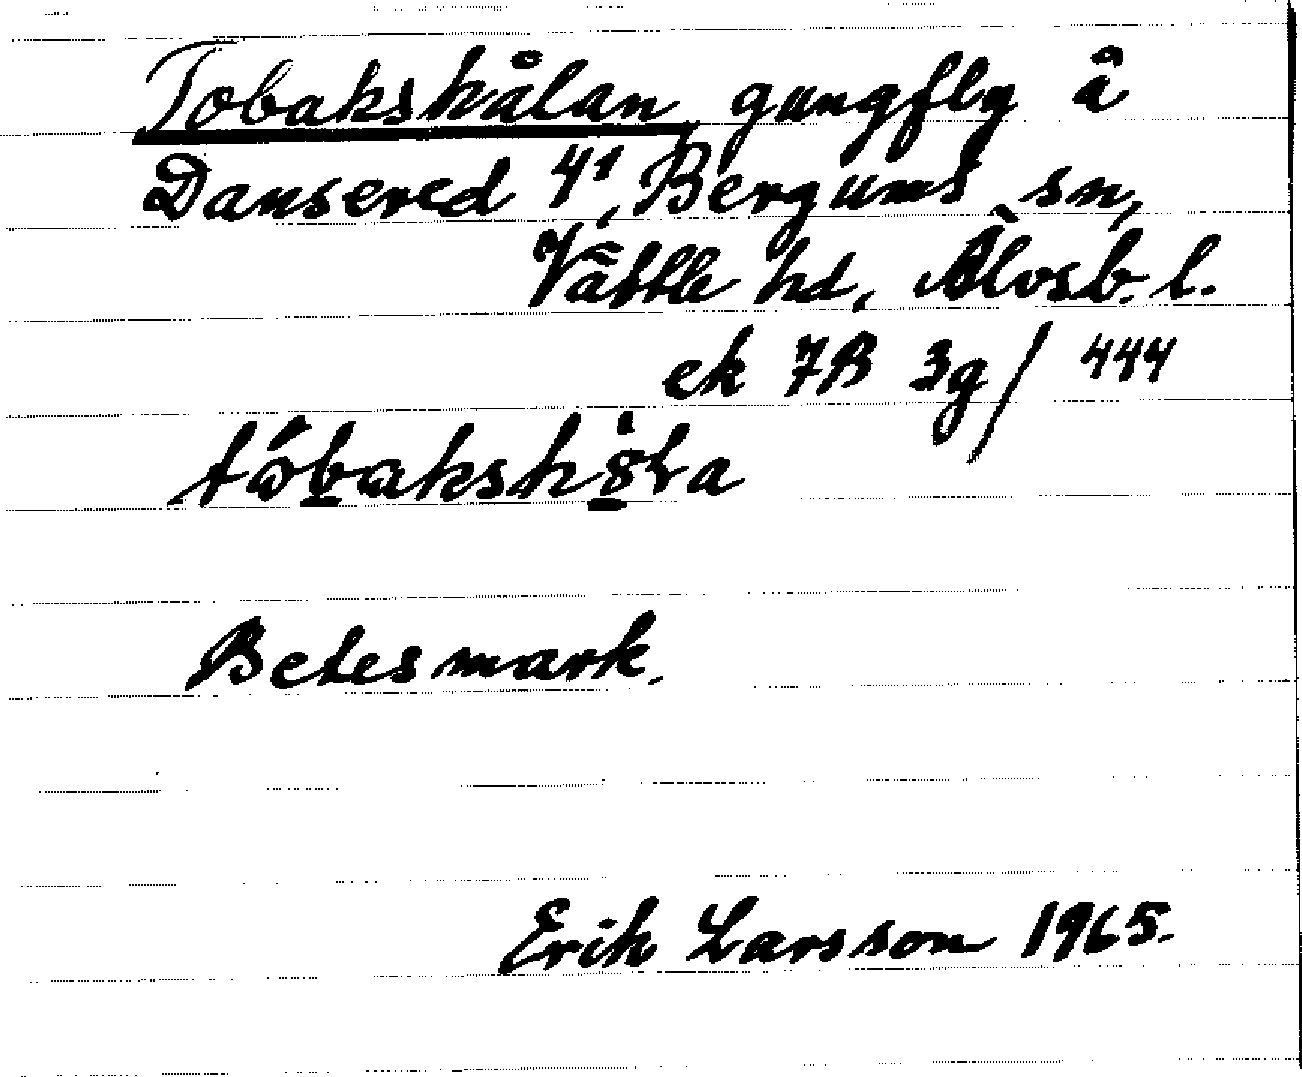 Tobakshålan gungfly å
Dansered 4¹, Bergums sn,
Vättle hd, Älvsb. l.
ek 7B 3g / 444
tóbakshola
Betesmark.
Erik Larsson 1965.